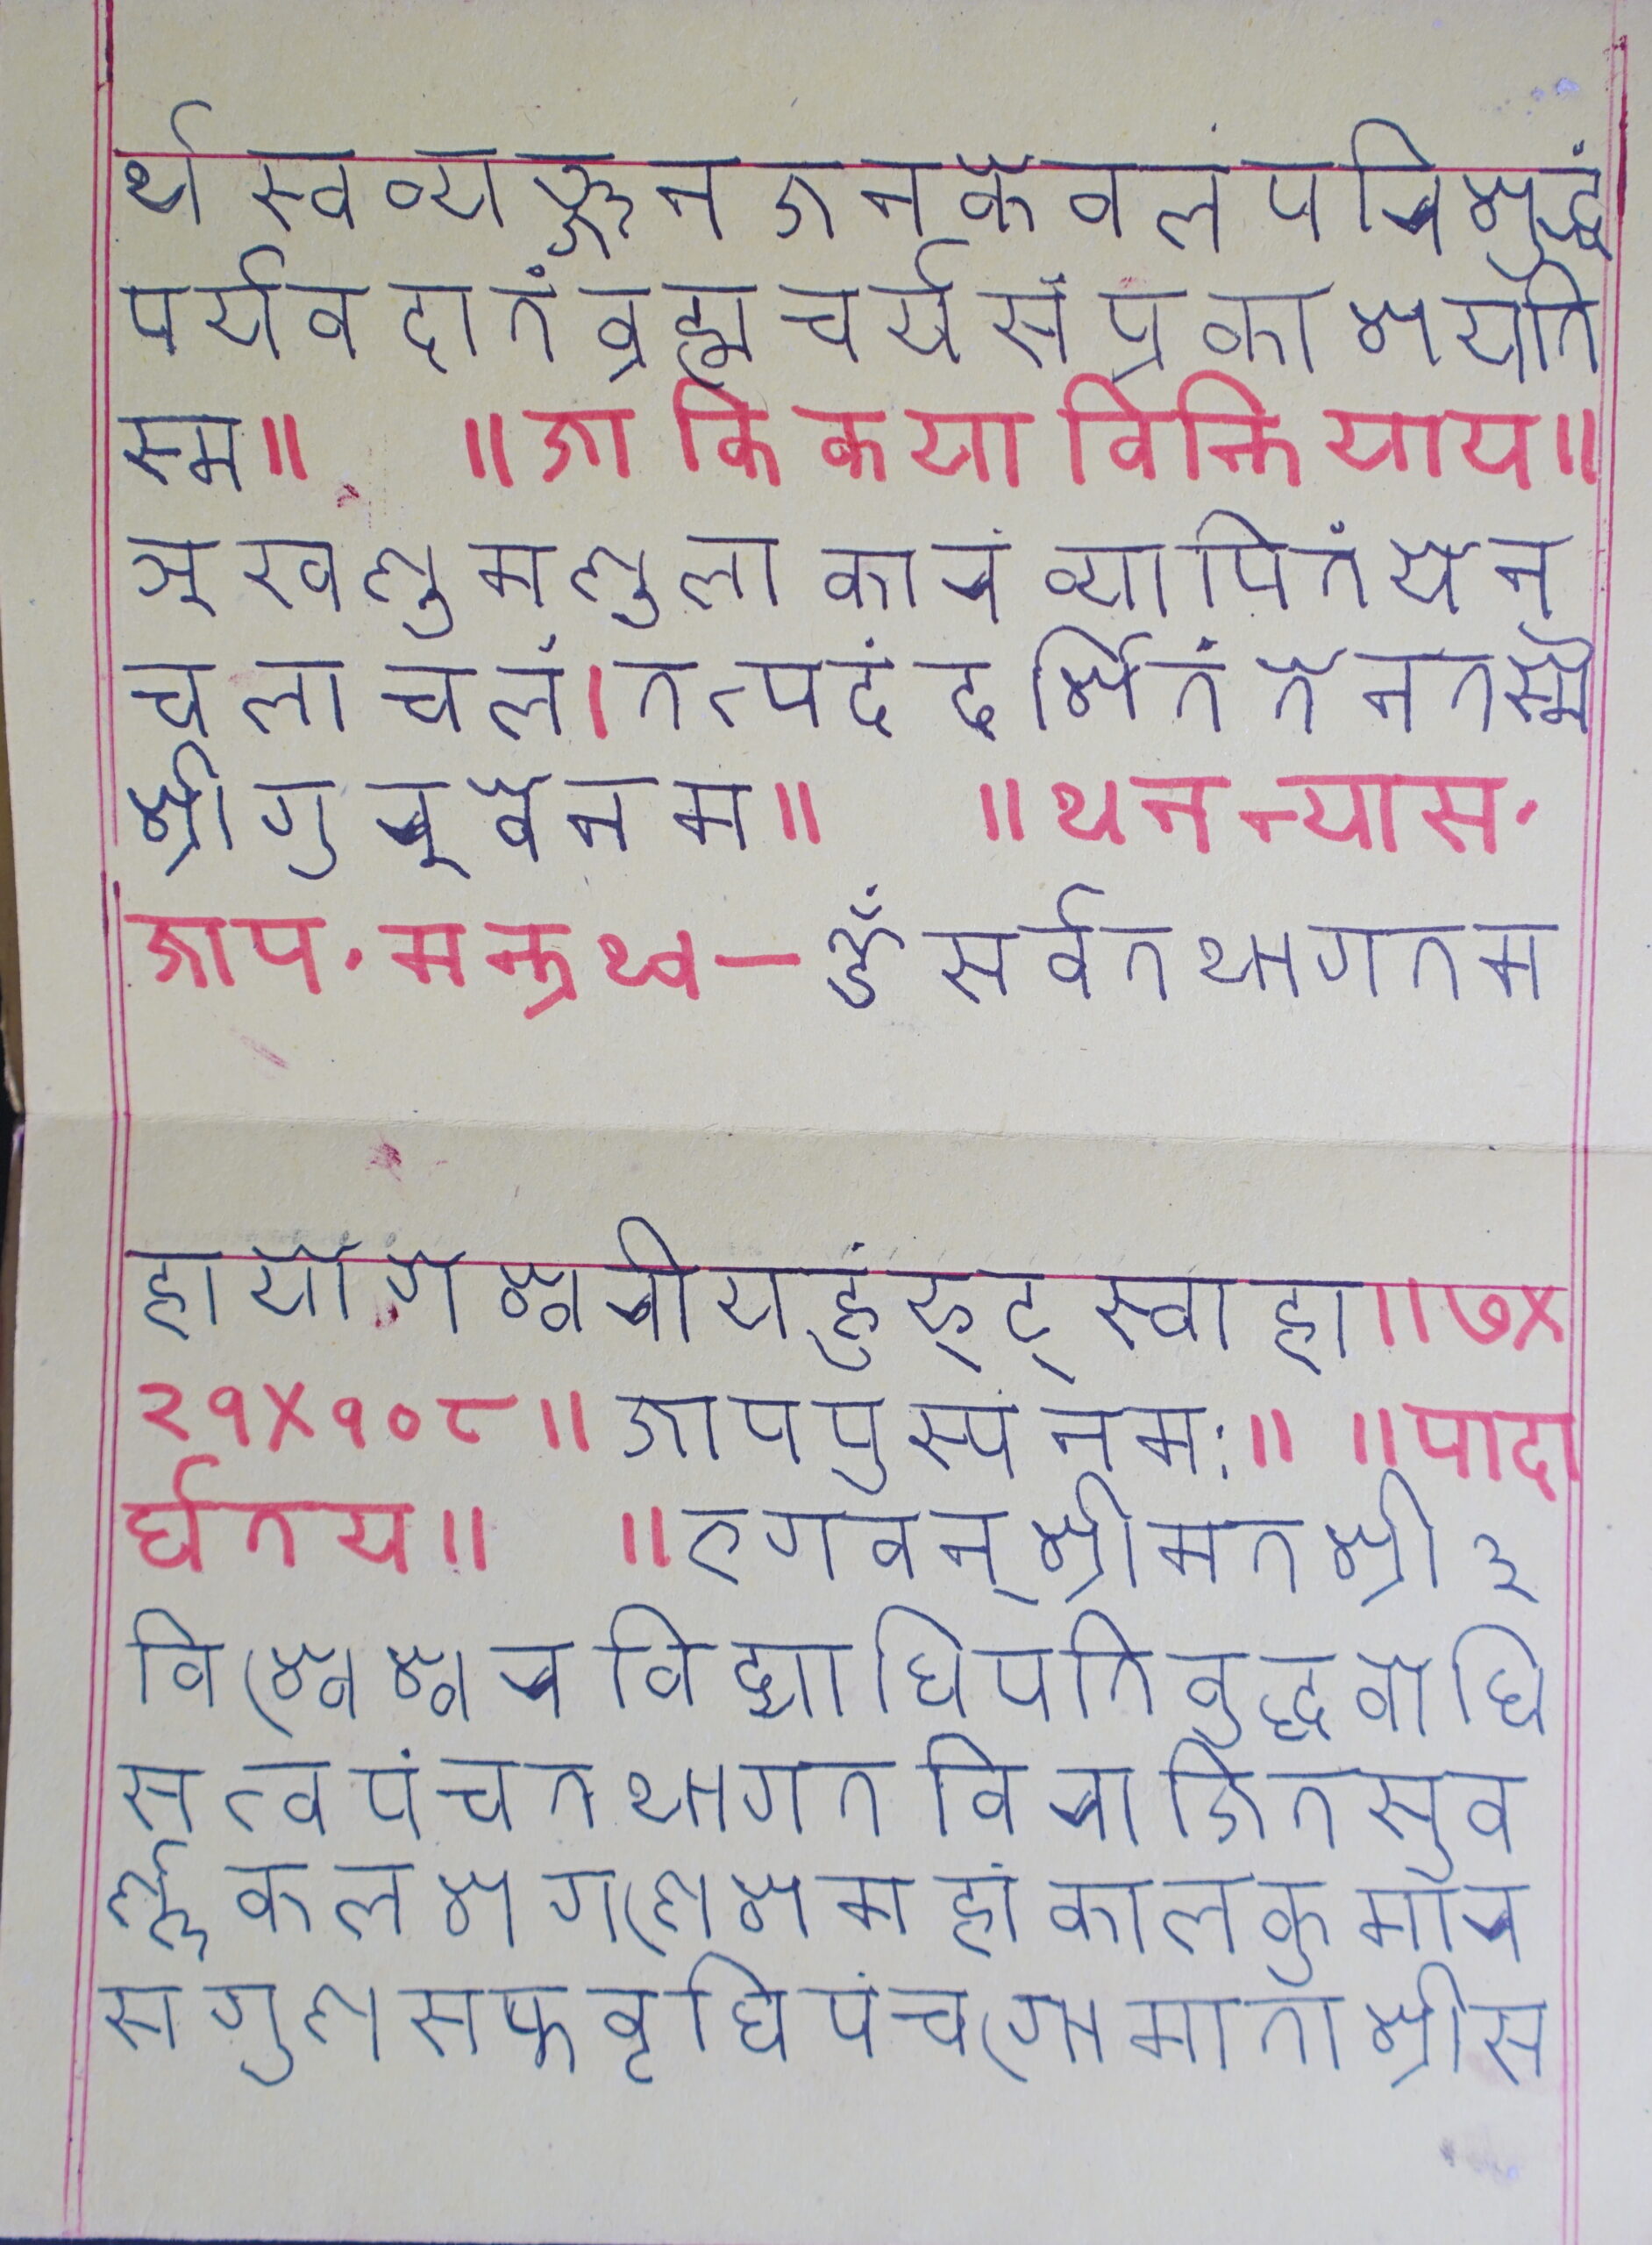 र्थ स्वव्यञ्जनजनकेवलं परिशुद्धं
पर्यवदातं ब्रह्मचर्य संप्रकाशयति
स्म॥ ॥जाकि कया विन्ति याय॥
अखण्डमण्डलाकारं व्यापितं येन
चलाचलं। तत्पदं दर्शितं तेन तस्मै
श्रीगुरूवे नम॥ ॥थन न्यास.
जाप. मन्त्र थ्व — ॐ सर्वतथागतम
हायोगेश्वरीय हुं फट् स्वाहा॥७X
२१X१०८॥ जापपुस्पं नमः॥ ॥पादा
र्घतय॥ ॥भगवन् श्रीमतश्री ३
विश्वेश्वर विद्याधिपति बुद्धबोधि
सत्व पंचतथागत विराजित सुव
र्ण्ण कलश गणेश महांकाल कुमार
सगुण सप्तवृधि पंचगोमाता श्रीस